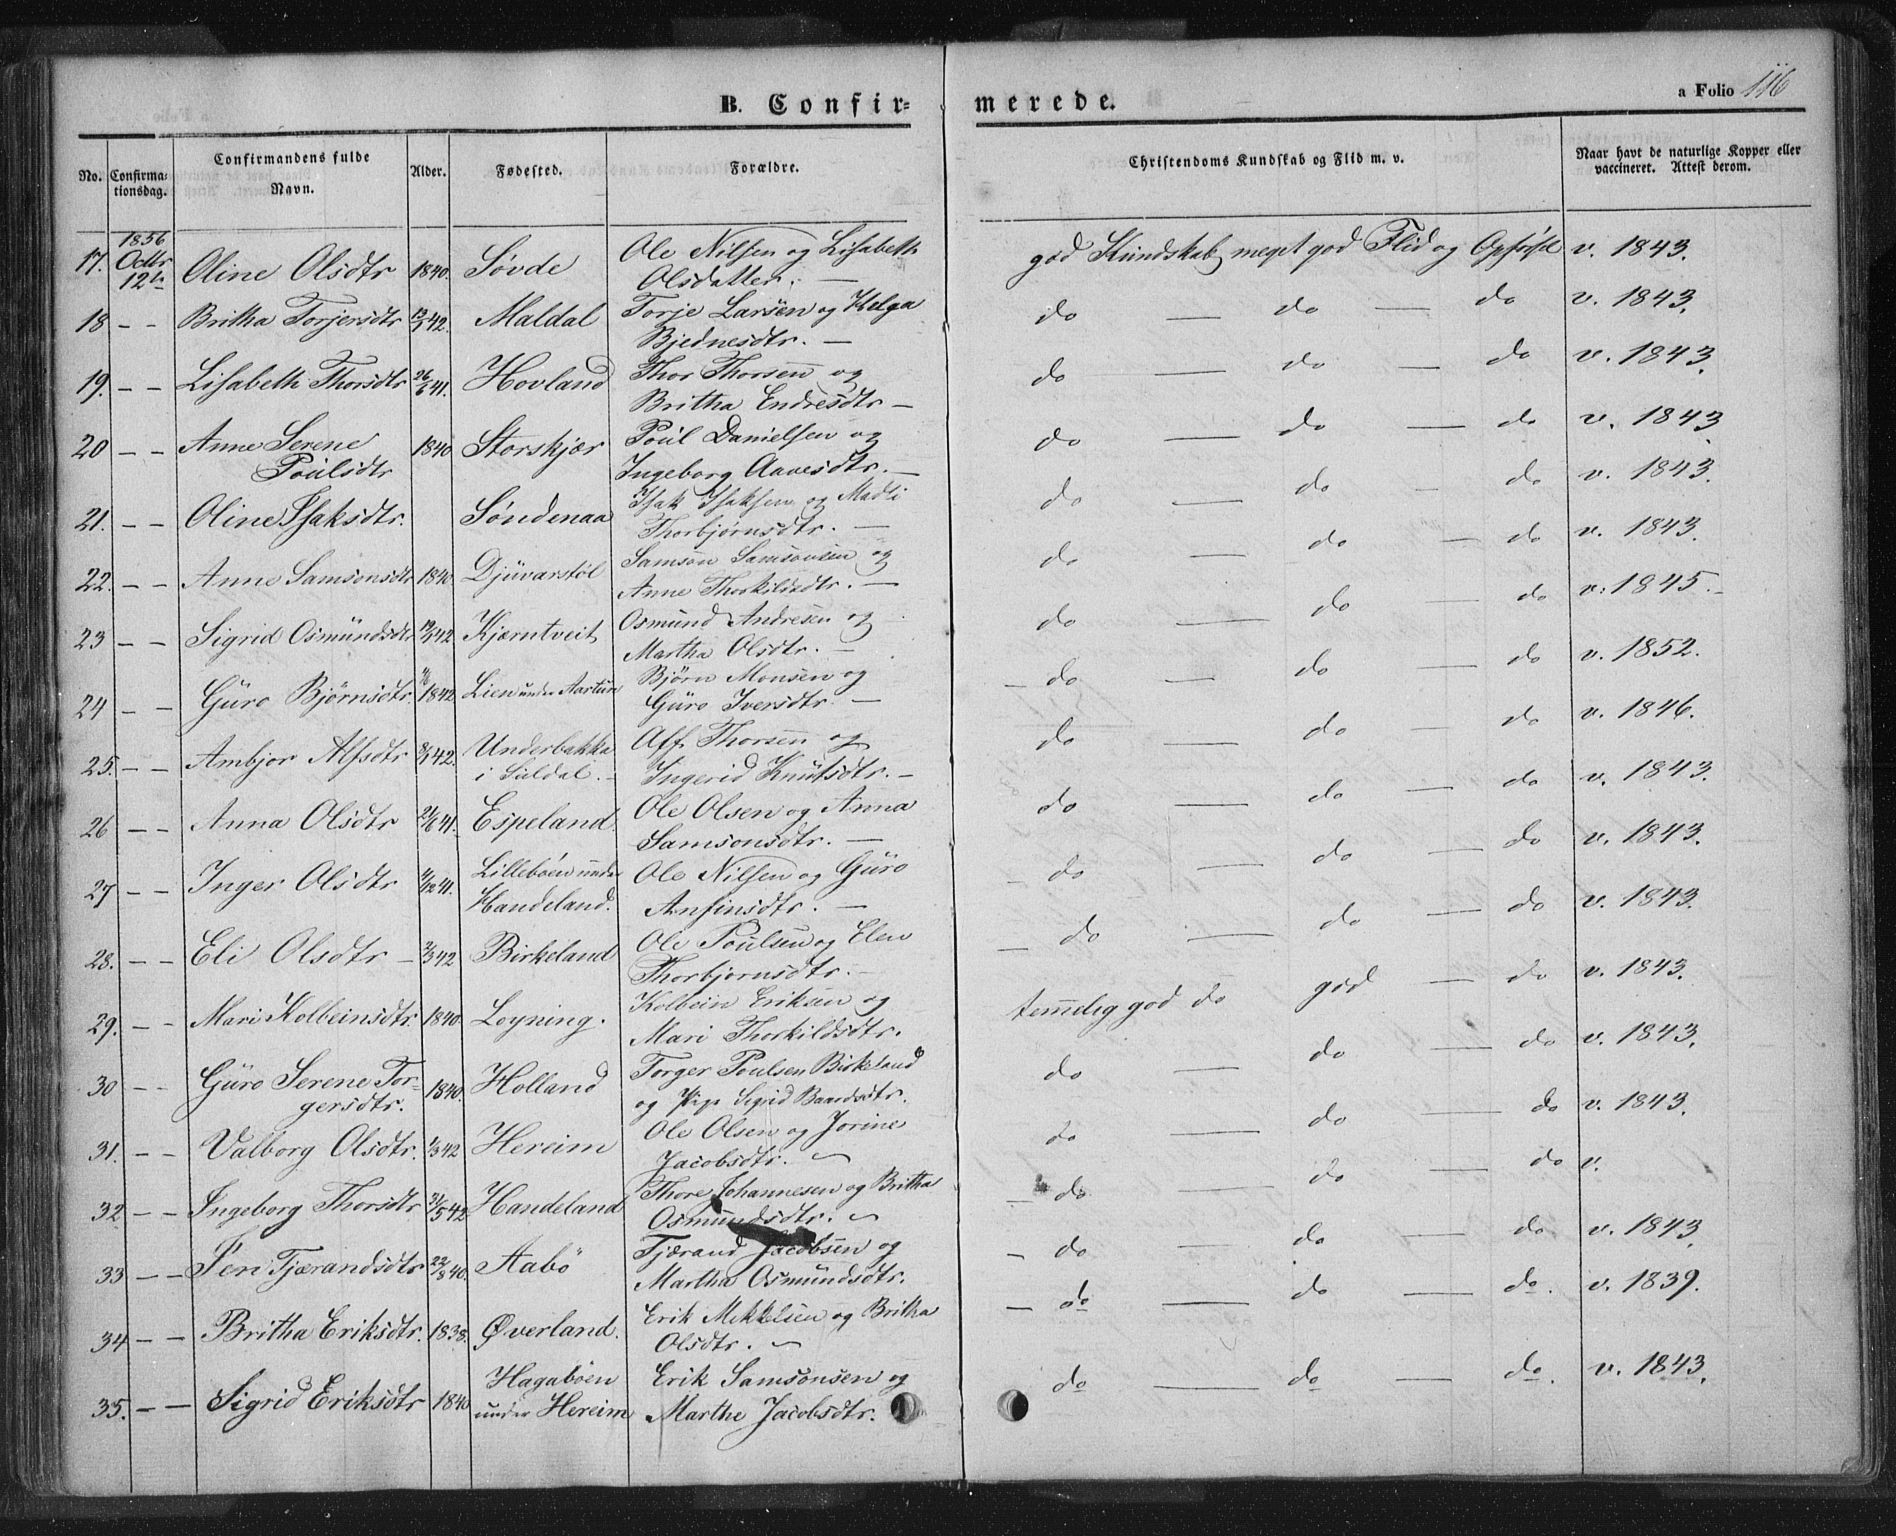 B. Confir=
merede.
a Folio 116
No.
Confirma=
tionsdag.
Confirmandens fulde
Navn.
Alder.
Fødested.
Forældre.
Christendoms Kundskab og Flid m. v.
Naar havt de naturlige Kopper eller
vaccineret. Attest derom.
17. 1856 Octbr 12te Oline Olsdtr 1840. Søvde Ole Nilsen og Lisabeth
Olsdatter. — god Kundskab, meget god Flid og Opførsl v. 1843.
18 — — Britha Torjersdtr 42. Maldal Torje Larsen og Helga
Bjednesdtr. — do — do — do v. 1843.
19. — — Lisabeth Thorsdtr 26/6 41. Hovland Thor Thorsen og
Britha Endresdtr — do — do — do v. 1843.
20 — — Anne Serene
Poulsdtr 1840 Storskjær Poul Danielsen og
Ingeborg Aavesdtr. — do — do — do v. 1843.
21. — — Oline Isaksdtr. Søndenaa Isak Isaksen og Madli
Thorbjørnsdtr. — do — do — do v. 1843.
22. — — Anne Samsonsdtr 1840 Djuvarstøl Samson Samsonsen og
Anne Thorkildsdtr. — do — do — do v. 1843.
23 — — Sigrid Osmundsdtr 42 Kjærntveit Osmund Andresen og
Martha Olsdtr. — do — do — do v. 1845. —
24 — — Guro Bjørnsdtr. 1842 Lien under Aartun Bjørn Monsen og
Guro Iversdtr. — — do — do — do v. 1852.
25. — — Ambjor Alfsdtr 42. Underbakka
i Suldal. — Alf Thorsen og
Ingerid Knutsdtr. — do — do — do v. 1846.
26 — — Anna Olsdtr 41. Espeland. Ole Olsen og Anna
Samsonsdtr. — do — do — do v. 1843.
27 — — Inger Olsdtr 41. Lillebøen under
Handeland. Ole Nilsen og Guro
Anfinsdtr. — — do — do — do v. 1843.
28. — — Eli Olsdtr — 2/3 42 Birkeland Ole Poulsen og Elen
Thorbjørnsdtr. — — do — do — do v. 1843.
29. — — Mari Kolbeinsdtr. 1840. Loyning. Kolbein Eriksen og
Mari Thorkildsdtr. temmelig god do god — do v. 1843.
30 — — Guro Serene Tor=
gersdtr. 1840. Holland Torger Poulsen Birkeland
og Pige Sigrid Baardsdtr. do — do — do v. 1843.
31. — — Valborg Olsdtr. 1/3 42 Hereim Ole Olsen og Jorine
Jacobsdtr. — do — do — do v. 1843.
32 — — Ingeborg Thorsdtr 31/5 42 Handeland Thore Johannesen og Britha
Osmundsdtr. — — do — do — do v.
33 — — Sen Tjærandsdtr 22/8 40. Aabö Tjærand Jacobsen og
Martha Osmundsdtr. — do — do — do v. 1843.
34 — — Britha Eriksdtr. 1838. Øverland. Erik Mikkelsen og Britha
Olsdtr. — — do — do — do. v. 1839.
35. — — Sigrid Eriksdtr 1840 Hagabøen
under Hereim Erik Samsonsen og
Marthe Jacobsdtr. do — do — do. v. 1843.